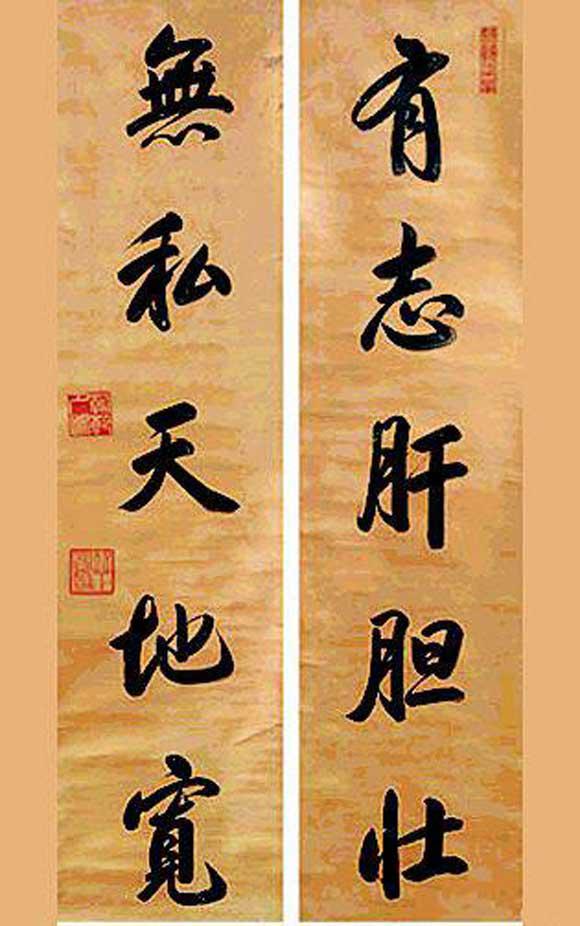 有志肝胆壮
無私天地寬